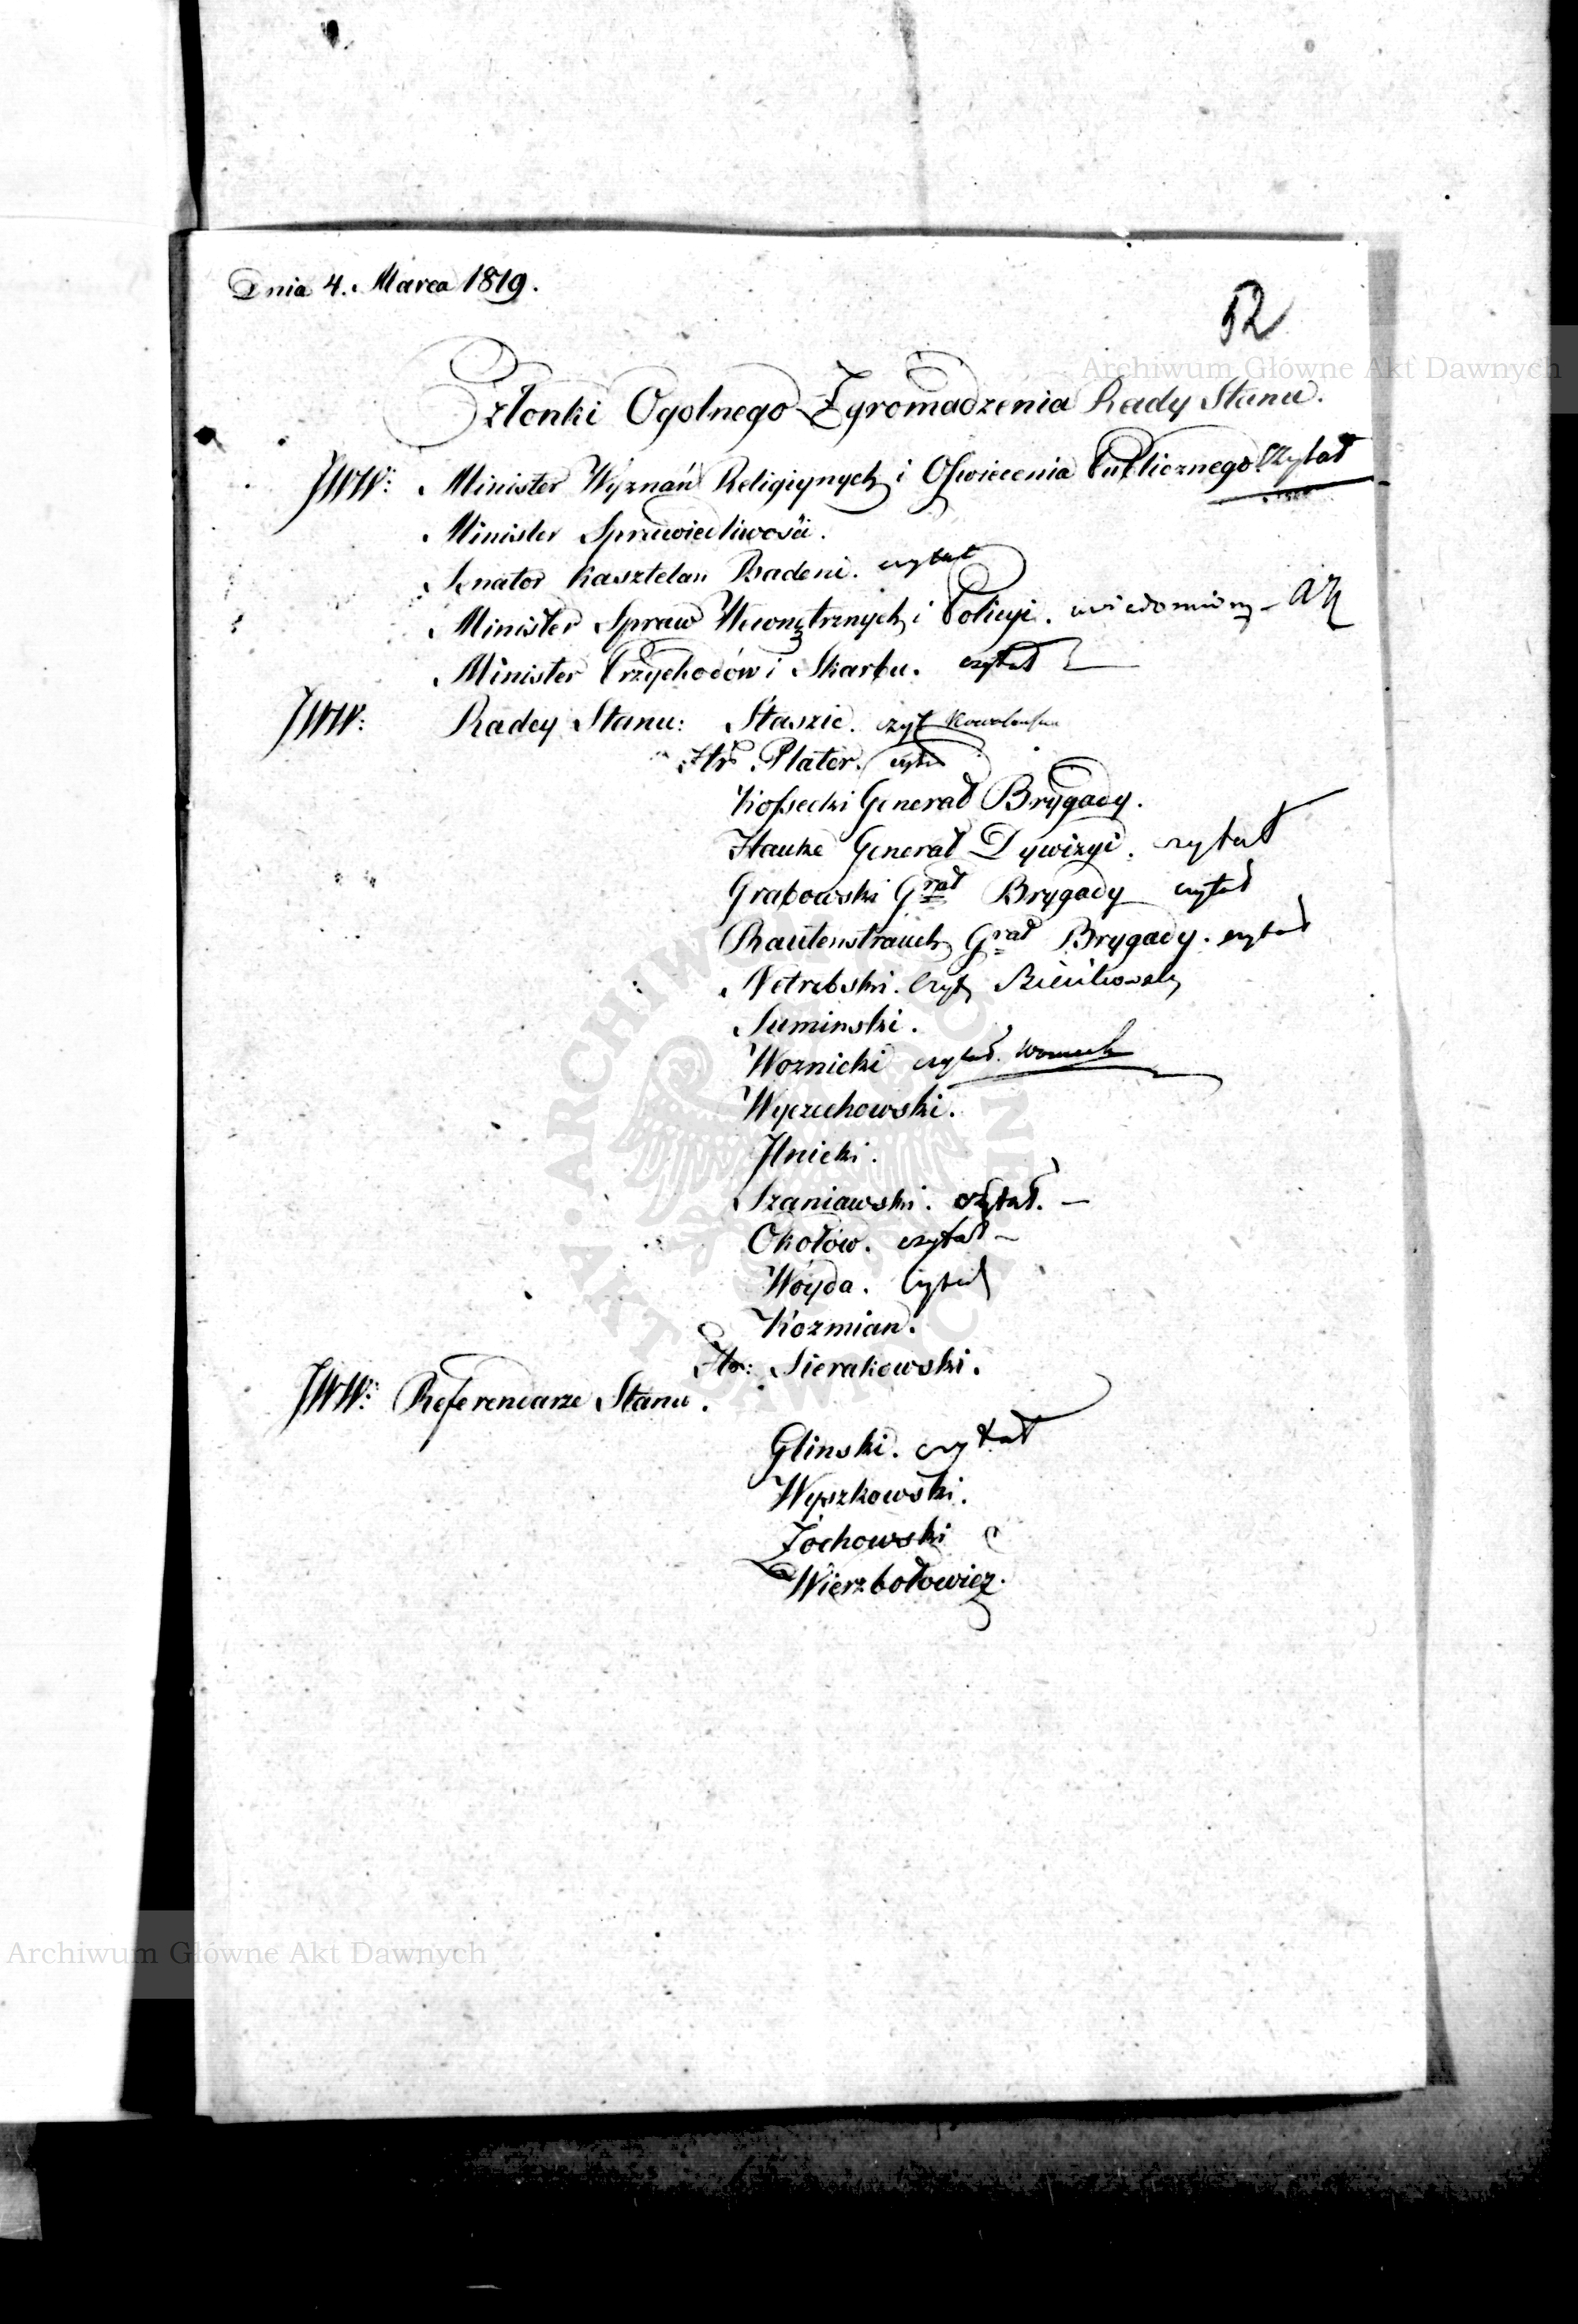 Dnia 4. Marca 1819.
52
Archiwum Główne Akt Dawnych
Członki Ogolnego Zgromadzenia Rady Stanu.
JWW: Minister Wyznań Religiynych i Oswiecenia Publicznego. czytał
Minister Sprawiedliwości.
Senator Kasztelan Badeni. czytał
Minister Spraw Wewnętrznych i Policyi. uwiadomiony -
Minister Przychodów i Skarbu. czytał
JWW: Radcy Stanu: Staszic. czyt
Hr. Plater. czytał
Kossecki Generał Brygady.
Hauke Generał Dywizyi. czytał
Grabowski Grał Brygady czytał
Rautenstrauch Grał Brygady. czytał
Netrebski. Czyt
Suminski.
Woznicki czytał. Woznicki
Wyczechowski.
Ilnicki.
Szaniawski. czytał. -
Okołów. czytał -
Woyda. Czytał
Kozmian.
Hr: Sierakowski.
JWW: Referendarze Stanu.
Glinski. czytał
Wyszkowski.
Zochowski
Wierzbołowicz.
Archiwum Główne Akt Dawnych
ARCHIWUM GŁÓWNE • AKT DAWNYCH •